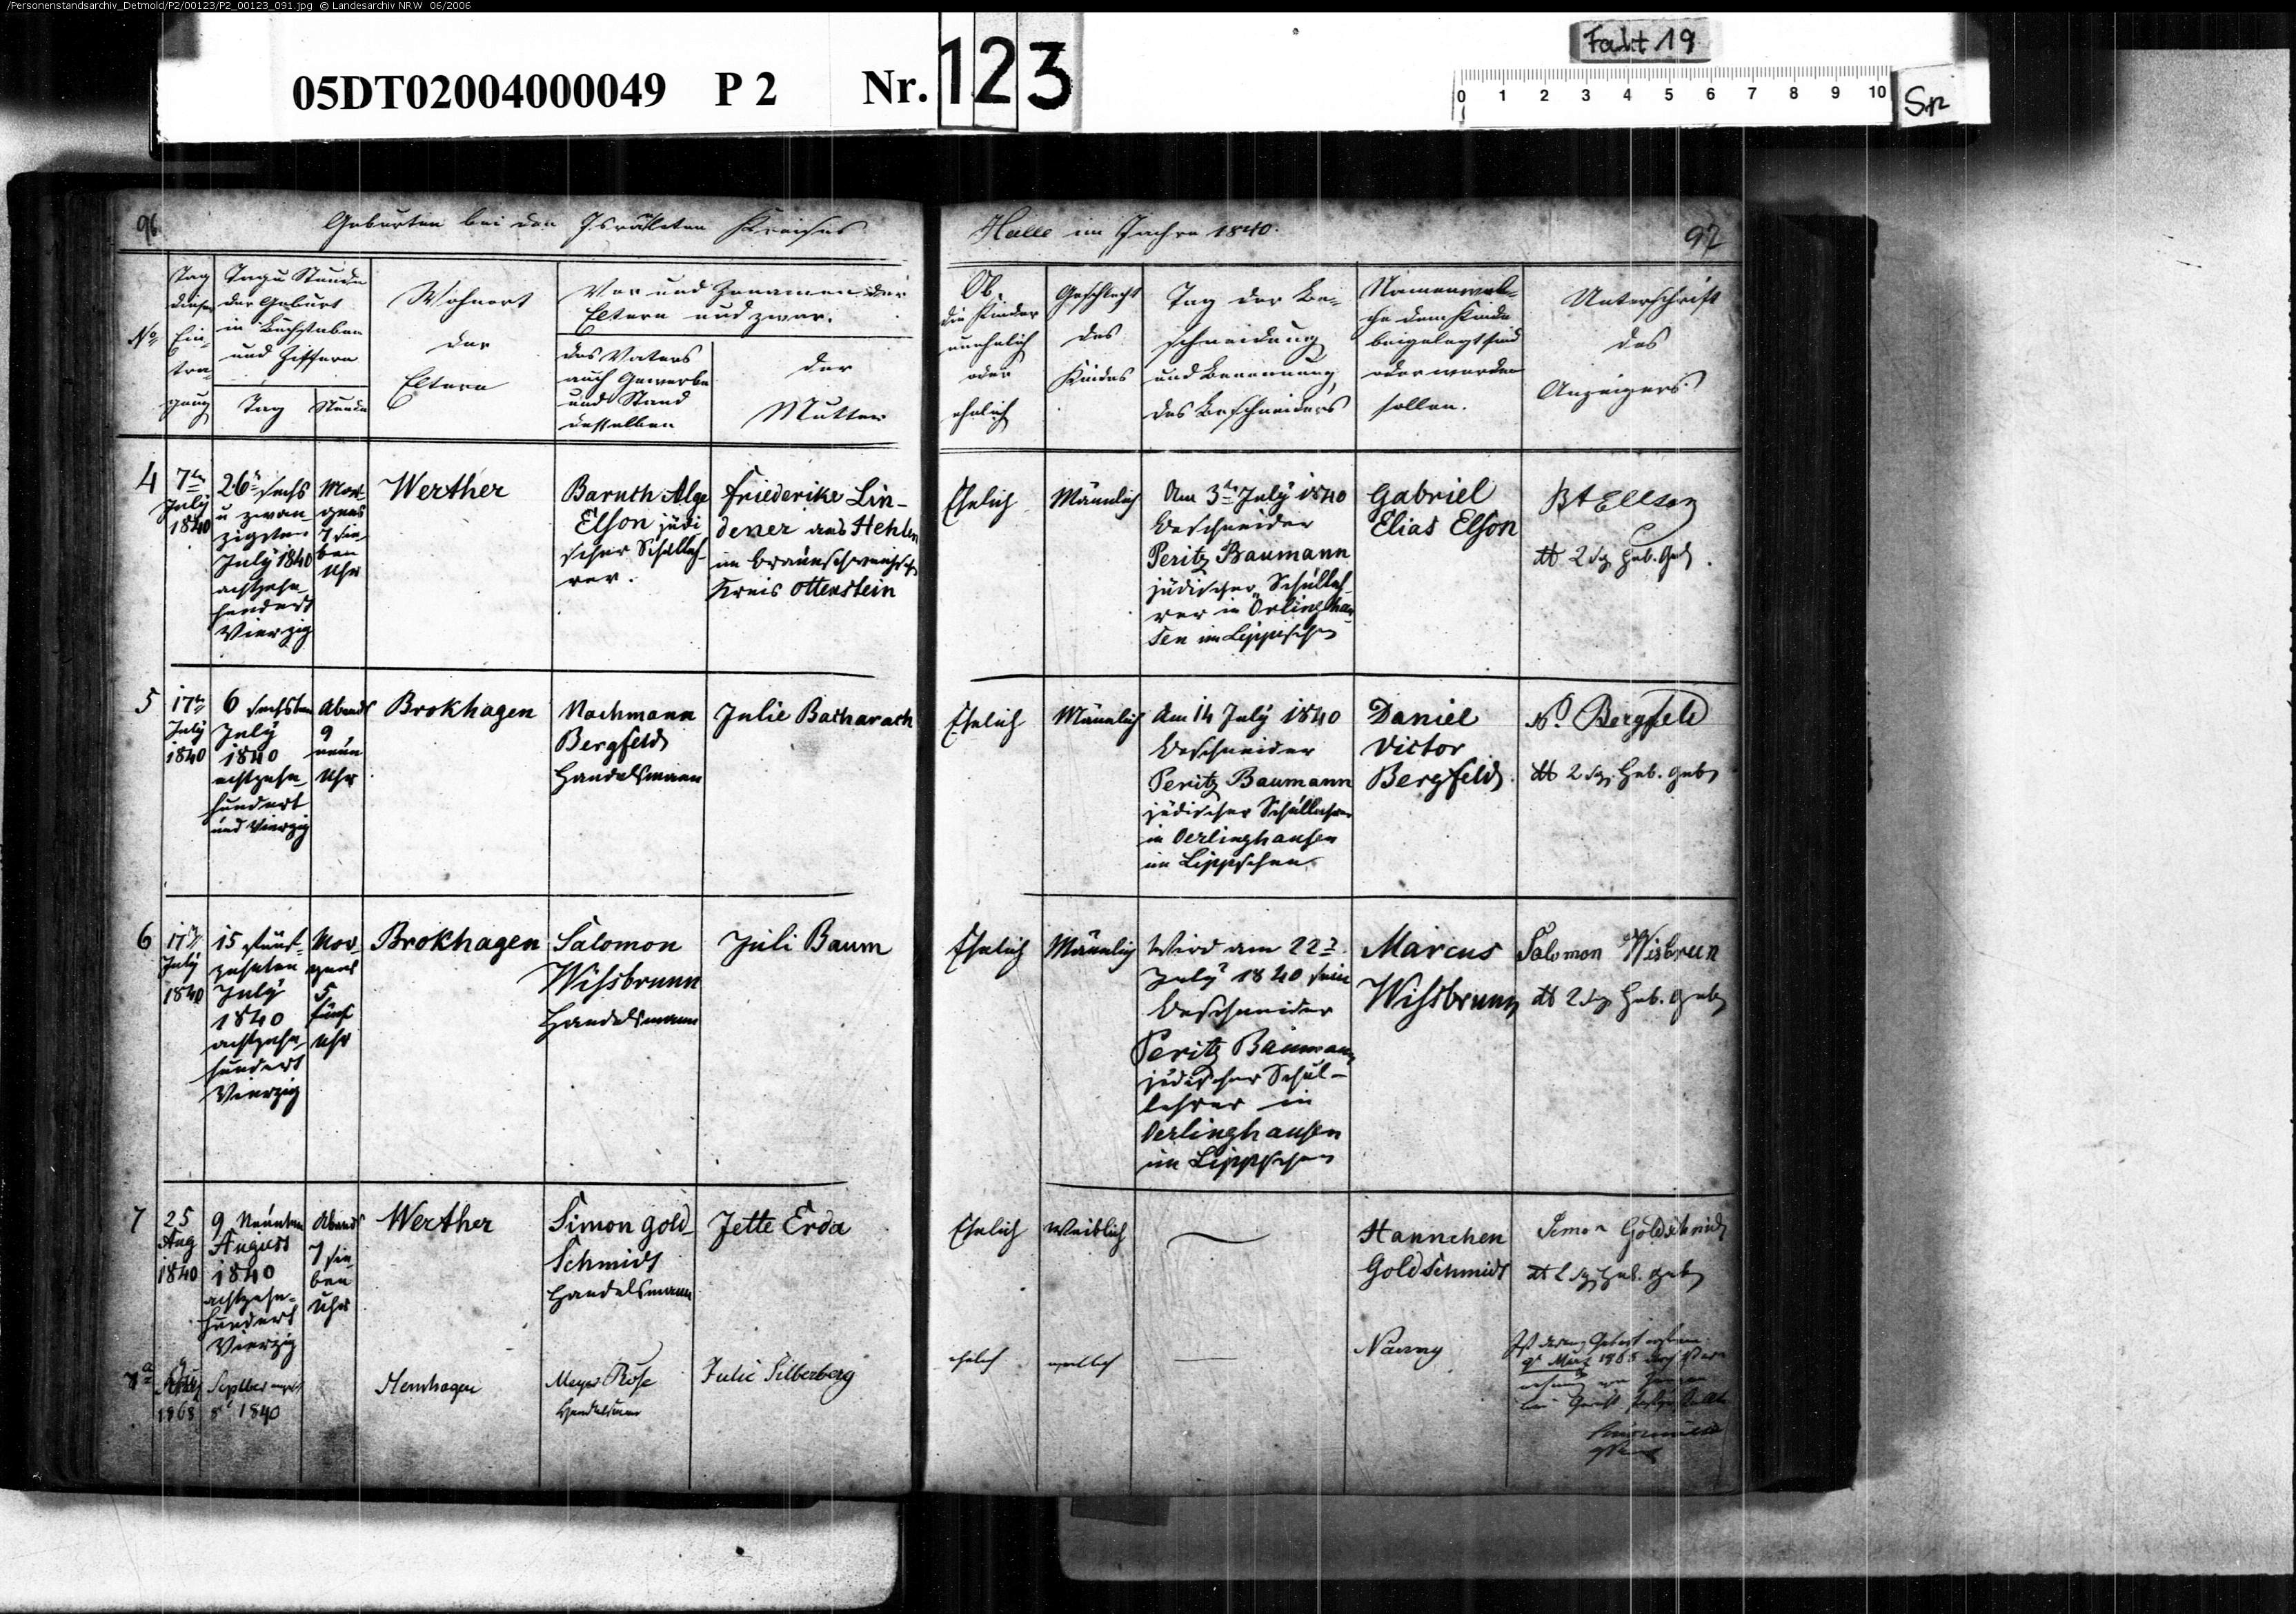 /Personenstandsarchiv_Detmold/P2/00123/P2_00123_091.jpg © Landesarchiv NRW 06/2006
05DT02004000049 P 2 Nr. 123
Fakt 19
0 1 2 3 4 5 6 7 8 9 10
96
Geburten bei den Israeliten Kreises
Halle im Jahre 1840.
97
No
Tag
dieser
Ein-
tra-
gung
Tag u Stunde
der Geburt
in Buchstaben
und Ziffern
Tag
Stunde
Wohnort
der
Eltern
Vor und Zunamen der
Eltern und zwar.
des Vaters
auch Gewerbe
und Stand
desselben
der
Mutter
Ob
die Kinder
unehelich
oder
ehelich
Geschlecht
des
Kindes
Tag der Be-
schneidung
und Benennung
des Beschneiders
Namen wel-
che dem Kinde
beigelegt sind
oder werden
sollen.
Unterschrift
des
Anzeigers.
4
7ten
July
1840
26t sechs
u zwan-
zigsten
July 1840
achtzehn-
hundert
Vierzig
Mor-
gens
7 sie-
ben
Uhr
Werther
Baruch Alge
Elson jüdi
scher Schulleh-
rer.
Friederike Lin-
dener aus Hehlen
im braunschweigsch
Kreis Ottenstein
Ehelich
Männlich
Am 3ten July 1840
Beschneider
Peritz Baumann
jüdischer Schulleh-
rer in Örlinghau
sen im Lippischen
Gabriel
Elias Elson
BA Ellson
5
17ten
July
1840
6 sechsten
July
1840
achtzehn-
hundert
und Vierzig
Abends
9
neun
Uhr
Brokhagen
Nachmann
Bergfeld
Handelsmann
Julie Bacharach
Ehelich
Männlich
Am 14 July 1840
Beschneider
Peritz Baumann
jüdischer Schullehrer
in Oerlinghausen
im Lippschen
Daniel
Victor
Bergfeld.
N. Bergfeld
6
17ten
July
1840
15 fünf-
zehnten
July
1840
achtzehn-
hundert
Vierzig
Mor-
gens
5
fünf
Uhr
Brokhagen
Salomon
Wissbrunn
Handelsmann
Juli Baum
Ehelich
Männlich
Wird am 22t
July 1840 sein
Beschneider
Peritz Baumann
jüdischer Schul-
lehrer in
Oerlinghausen
im Lippschen
Marcus
Wissbrunn
Salomon Wisbrun
7
25
Aug
1840
9 Neunten
August
1840
achtzehn-
hundert
Vierzig
Abends
7 sie-
ben
Uhr
Werther
Simon Gold-
Schmidt
Handelsmann
Jette Erda
Ehelich
Weiblich
Hannchen
Goldschmidt
Simon Goldschmidt
7a
1865
Septber
8t 1840
Meyer Rose
Handelsmann
Julie Silberberg
ehelich
weiblich
Nanny